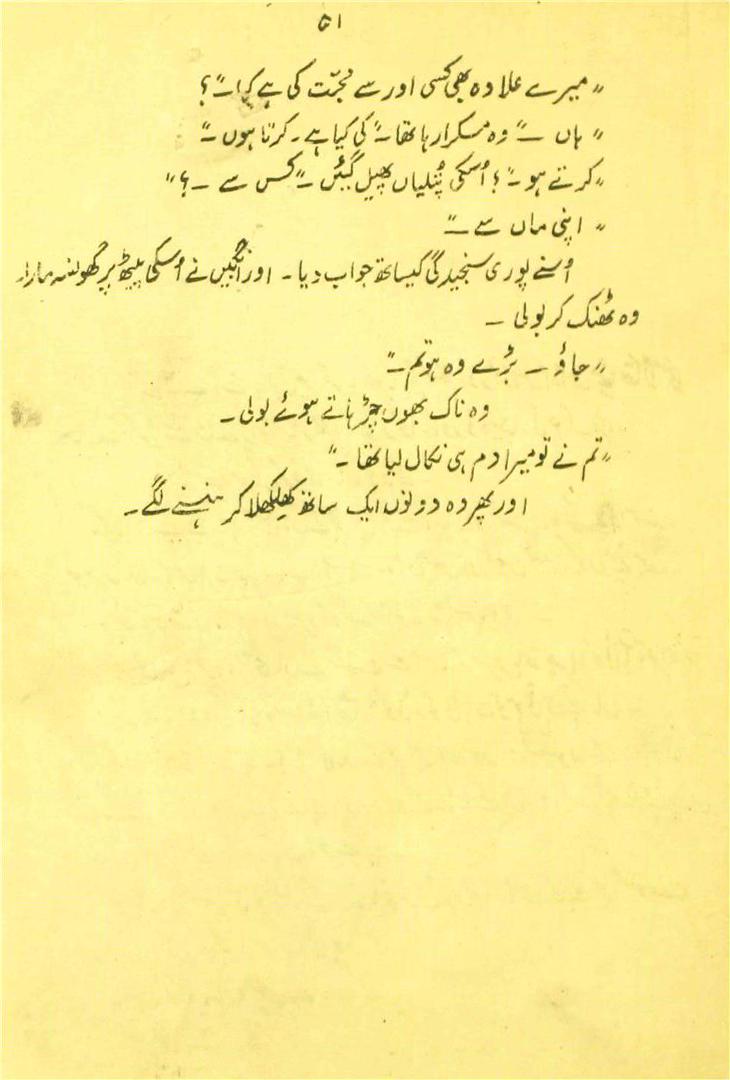 ۵۱
"میرے علاوہ بھی کسی اور سے محبّت کی ہے کیا۔"؟
"ہاں —" وہ مسکرا رہا تھا۔" کی کیا ہے۔ کرتا ہوں۔"
"کرتے ہو۔"؟ اُسکی پُتلیاں پھیل گئیں۔" کس سے —؟"
"اپنی ماں سے —"
اُسنے پوری سنجیدگی کیساتھ جواب دیا۔ اور انگبیں نے اُسکی پیٹھ پر گھونسہ مارا۔
وہ ٹھنک کر بولی —
"جاؤ — بڑے وہ ہو تم۔"
وہ ناک بھوں چڑہاتے ہوئے بولی۔
"تم نے تو میرا دم ہی نکال لیا تھا۔"
اور پھر وہ دونوں ایک ساتھ کھلکھلا کر ہنسنے لگے۔